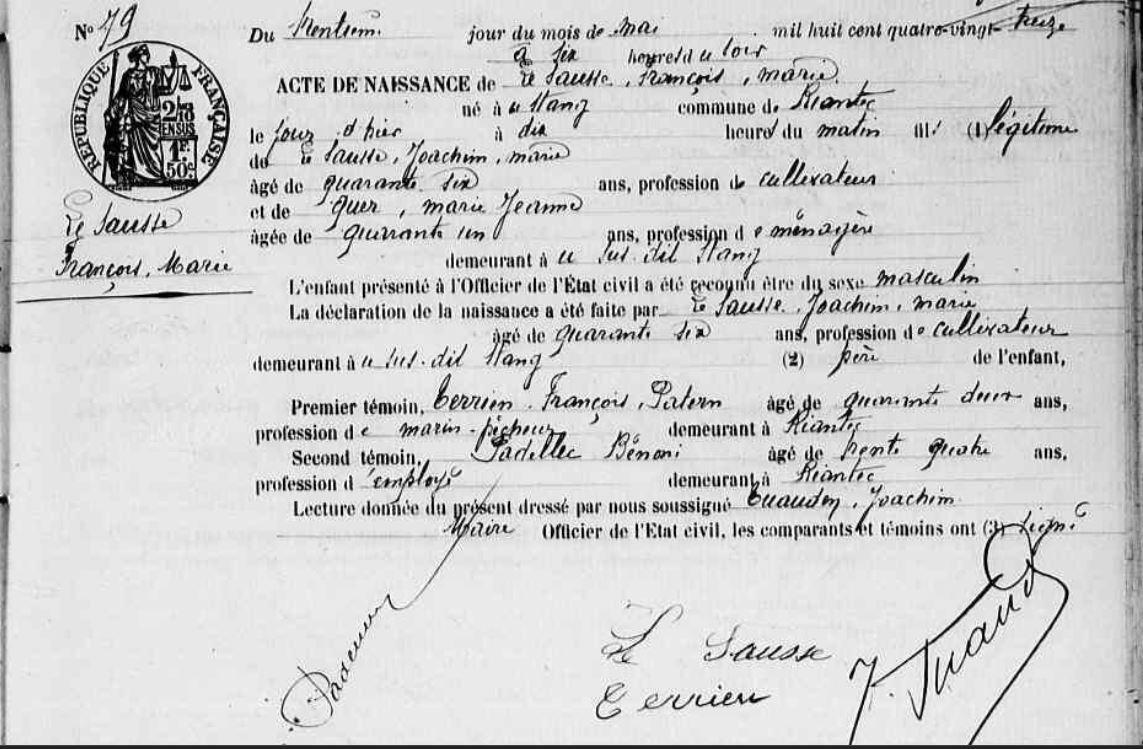 No 79
Du trentième jour du mois de mai mil huit cent quatre-vingt-treize
à six heures du soir
ACTE DE NAISSANCE de Le Sausse, François, marie
né à u Stang commune de Riantec
le jour d'hier à dix heures du matin fils (1) légitime
de Le Sausse, Joachim, marie
âgé de quarante six ans, profession de cultivateur
et de Quer, marie Jeanne
âgée de quarante un ans, profession de ménagère
demeurant à u sus-dit Stang
L'enfant présenté à l'Officier de l'État civil a été reconnu être du sexe masculin
La déclaration de la naissance a été faite par Le Sausse, Joachim, marie
âgé de quarante six ans, profession de cultivateur
demeurant à u sus-dit Stang (2) père de l'enfant,
Premier témoin, Terrien François, Patern âgé de quarante deux ans,
profession de marin-pêcheur demeurant à Riantec
Second témoin, Padellec Bénoni âgé de trente quatre ans,
profession d'employé demeurant à Riantec
Lecture donnée du présent dressé par nous soussigné Tuauden, Joachim
Maire Officier de l'Etat civil, les comparants et témoins ont (3) signé
RÉPUBLIQUE FRANÇAISE
2/10 EN SUS
1F. 50c.
Le Sausse
François, Marie
Le Sausse
Terrien